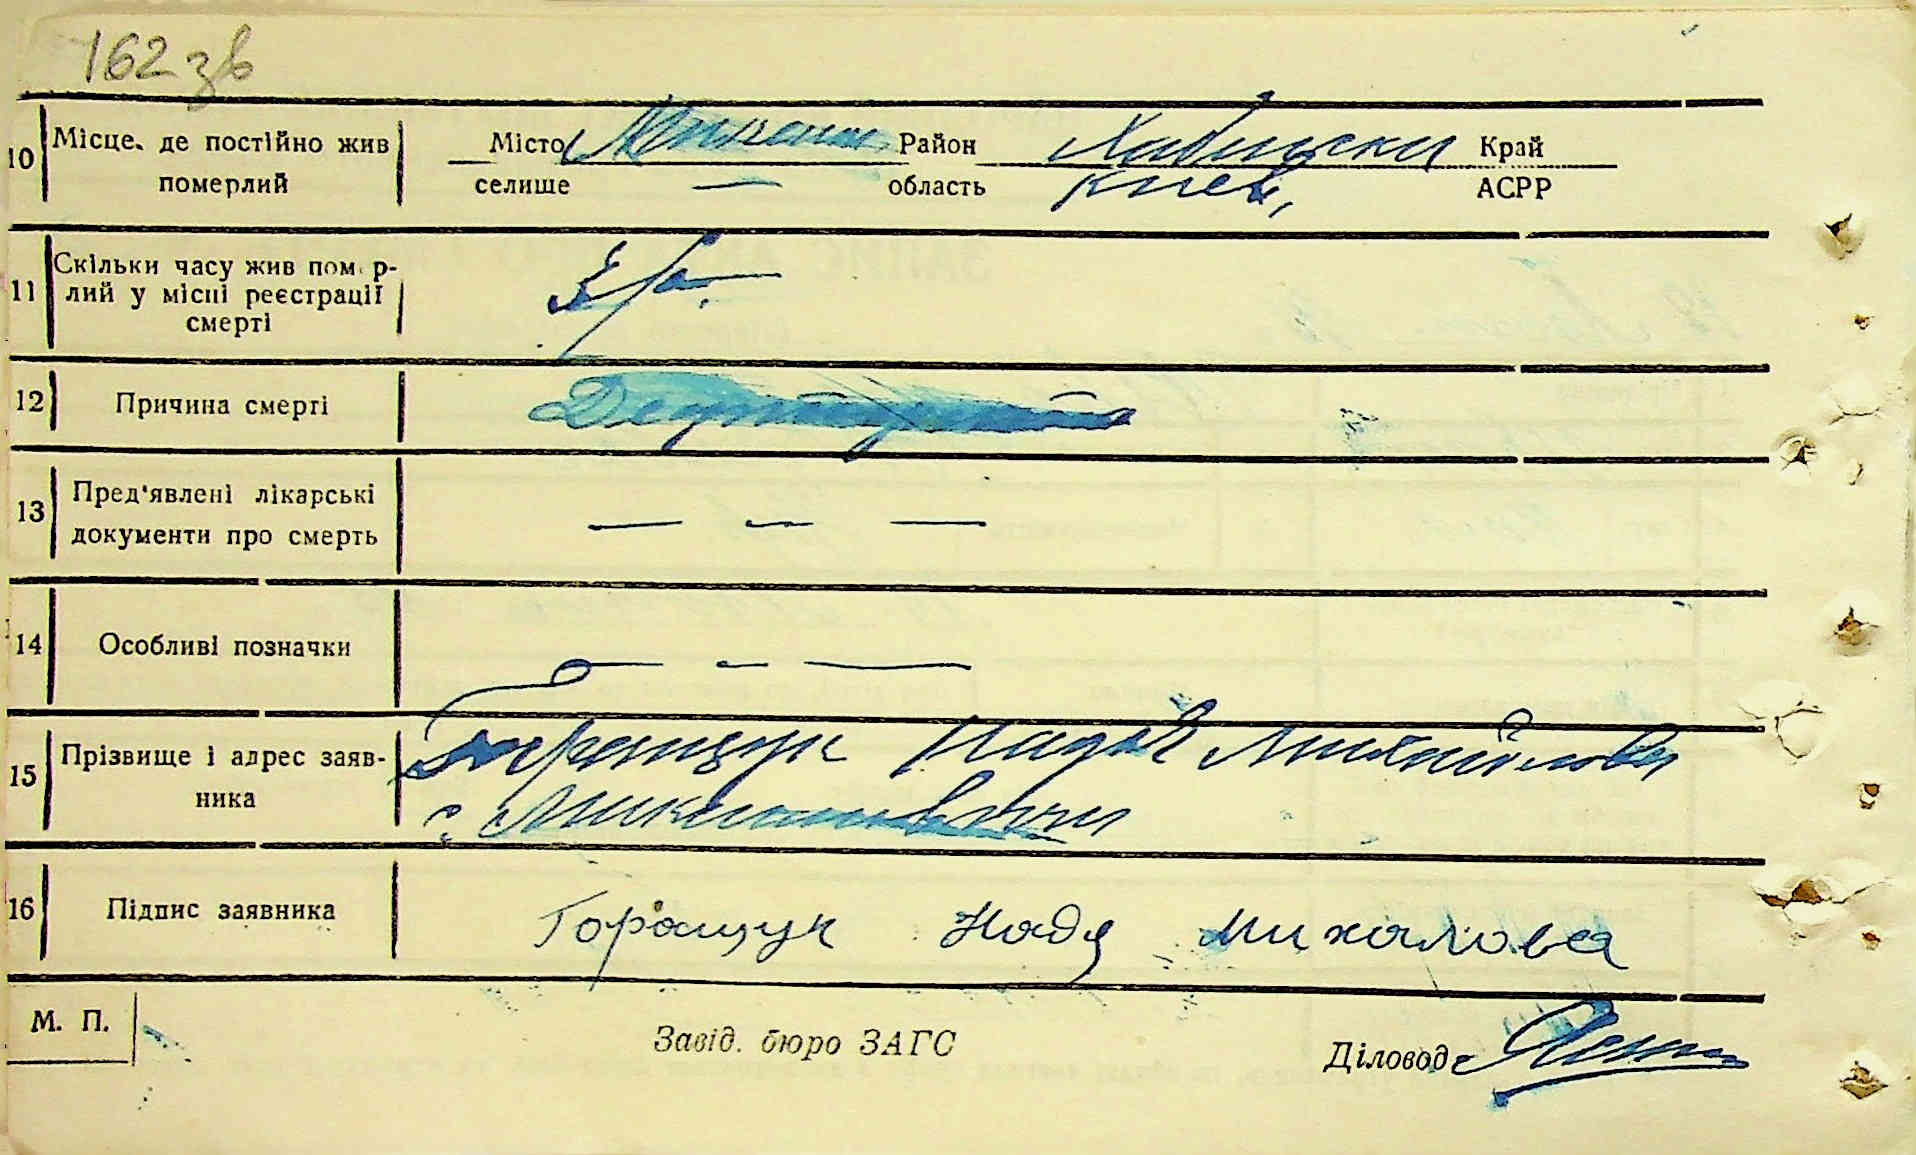 162 зв
10 Місце, де постійно жив Місто Район Хабицьки Край
померлий селище — область Киев, АСРР
11 Скільки часу жив помер-
лий у місці реєстрації
смерті
12 Причина смерті
13 Пред'явлені лікарські
документи про смерть — — —
14 Особливі позначки — — —
15 Прізвище і адрес заяв- Горащук Надія Михайлова
ника с.
16 Підпис заявника Горощук Надя Михалова
М. П.
Завід. бюро ЗАГС
Діловод